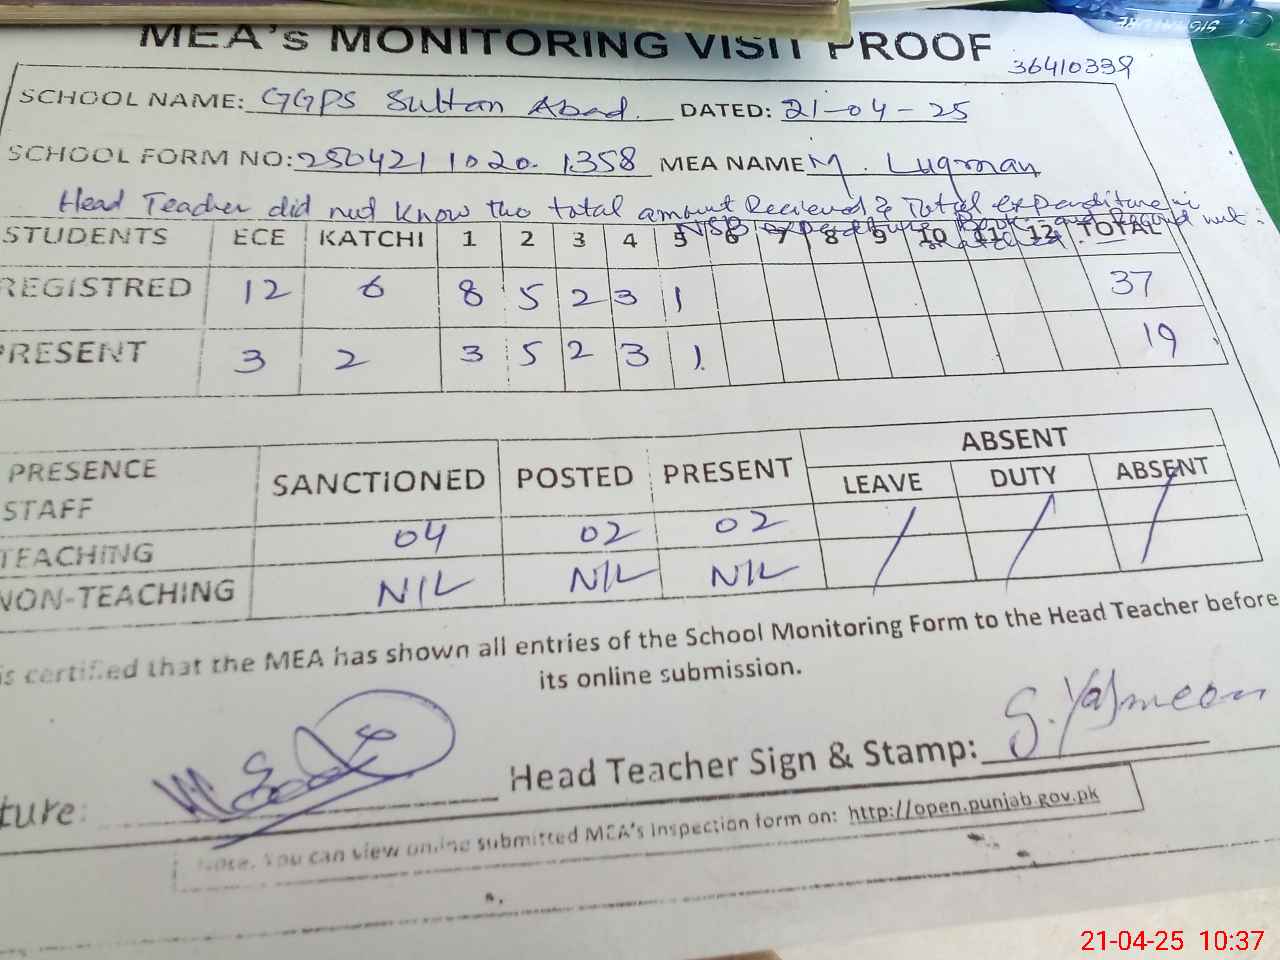 MEA's MONITORING VISIT PROOF
36410339
SCHOOL NAME: GGPS Sultan Abad. DATED: 21-04-25
SCHOOL FORM NO: 250421 1020. 1358 MEA NAME M. Luqman
Head Teacher did not know the total amount Recieved & Total expenditure in
NSB
STUDENTS ECE KATCHI 1 2 3 4 5 6 7 8 9 10 11 12 TOTAL
REGISTRED 12 6 8 5 2 3 1 37
PRESENT 3 2 3 5 2 3 1. 19
PRESENCE STAFF SANCTIONED POSTED PRESENT ABSENT
LEAVE DUTY ABSENT
TEACHING 04 02 02 / / /
NON-TEACHING NIL NIL NIL
is certified that the MEA has shown all entries of the School Monitoring Form to the Head Teacher before
its online submission.
ture: Head Teacher Sign & Stamp: S. Yasmeen
Note. You can view online submitted MEA's Inspection form on: http://open.punjab.gov.pk
21-04-25 10:37